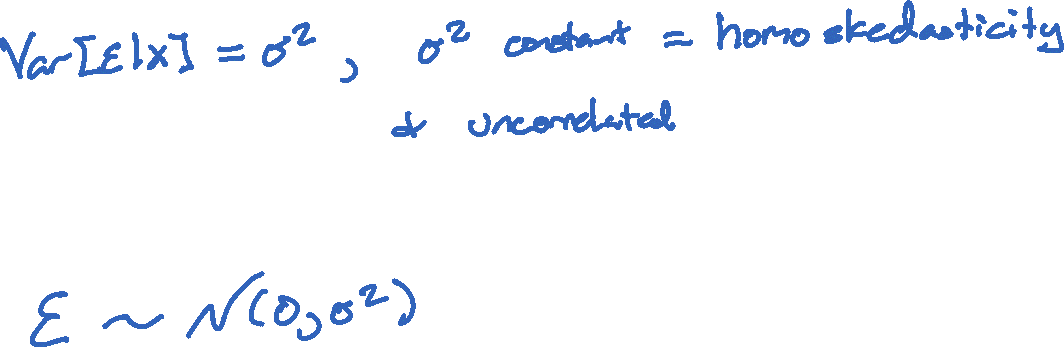 Var[ε|x] = σ², σ² constant = homoskedasticity
& uncorrelated
ε ~ N(0, σ²)